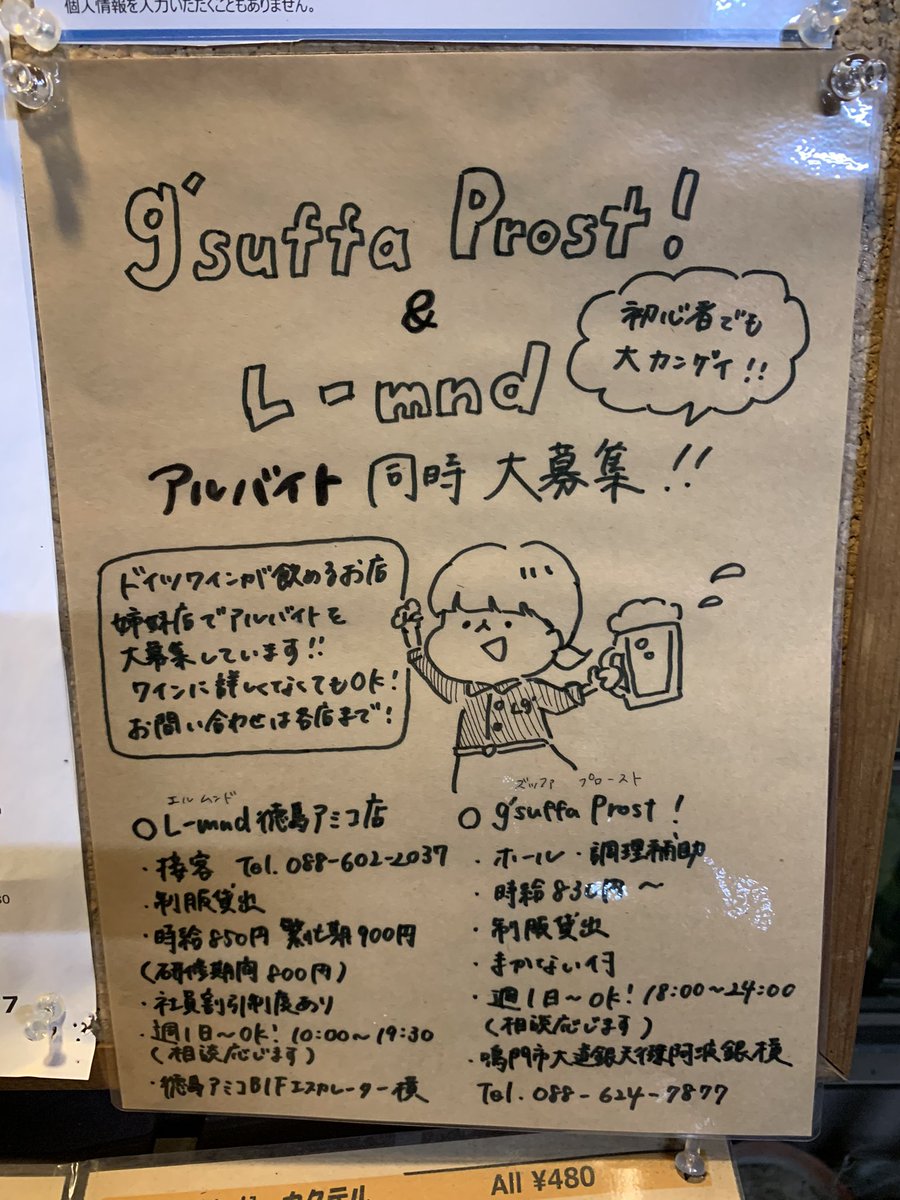 個人情報を入力いただくこともありません。
g'suffa Prost!
&
L-mnd
初心者でも
大カンゲイ!!
アルバイト 同時 大募集!!
ドイツワインが飲めるお店
姉妹店でアルバイトを
大募集しています!!
ワインに詳しくなくてもOK!
お問い合わせは各店まで!
エル ムンド
○L-mnd 徳島アミコ店
・接客 Tel.088-602-2037
・制服貸出
・時給850円 繁忙期900円
(研修期間800円)
・社員割引制度あり
・週1日〜OK! 10:00〜19:30
(相談応じます)
・徳島アミコB1Fエスカレーター横
ズッファ プロースト
○ g'suffa Prost!
・ホール・調理補助
・時給830円〜
・制服貸出
・まかない付
・週1日〜OK! 18:00〜24:00
(相談応じます)
・鳴門市大道銀天街阿波銀横
Tel.088-624-7877
カクテル All ¥480